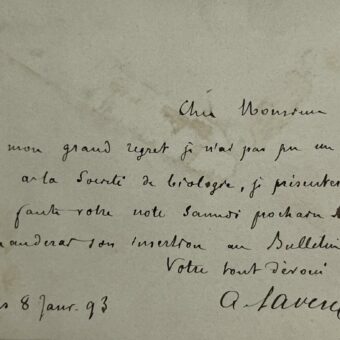 Cher Monsieur
mon grand regret je n'ai pas pu
à la Société de biologie, je présenter
faute votre note Samedi prochain
manderai son insertion au Bulletin
Votre tout dévoué
8 Janv. 93
A. Laver